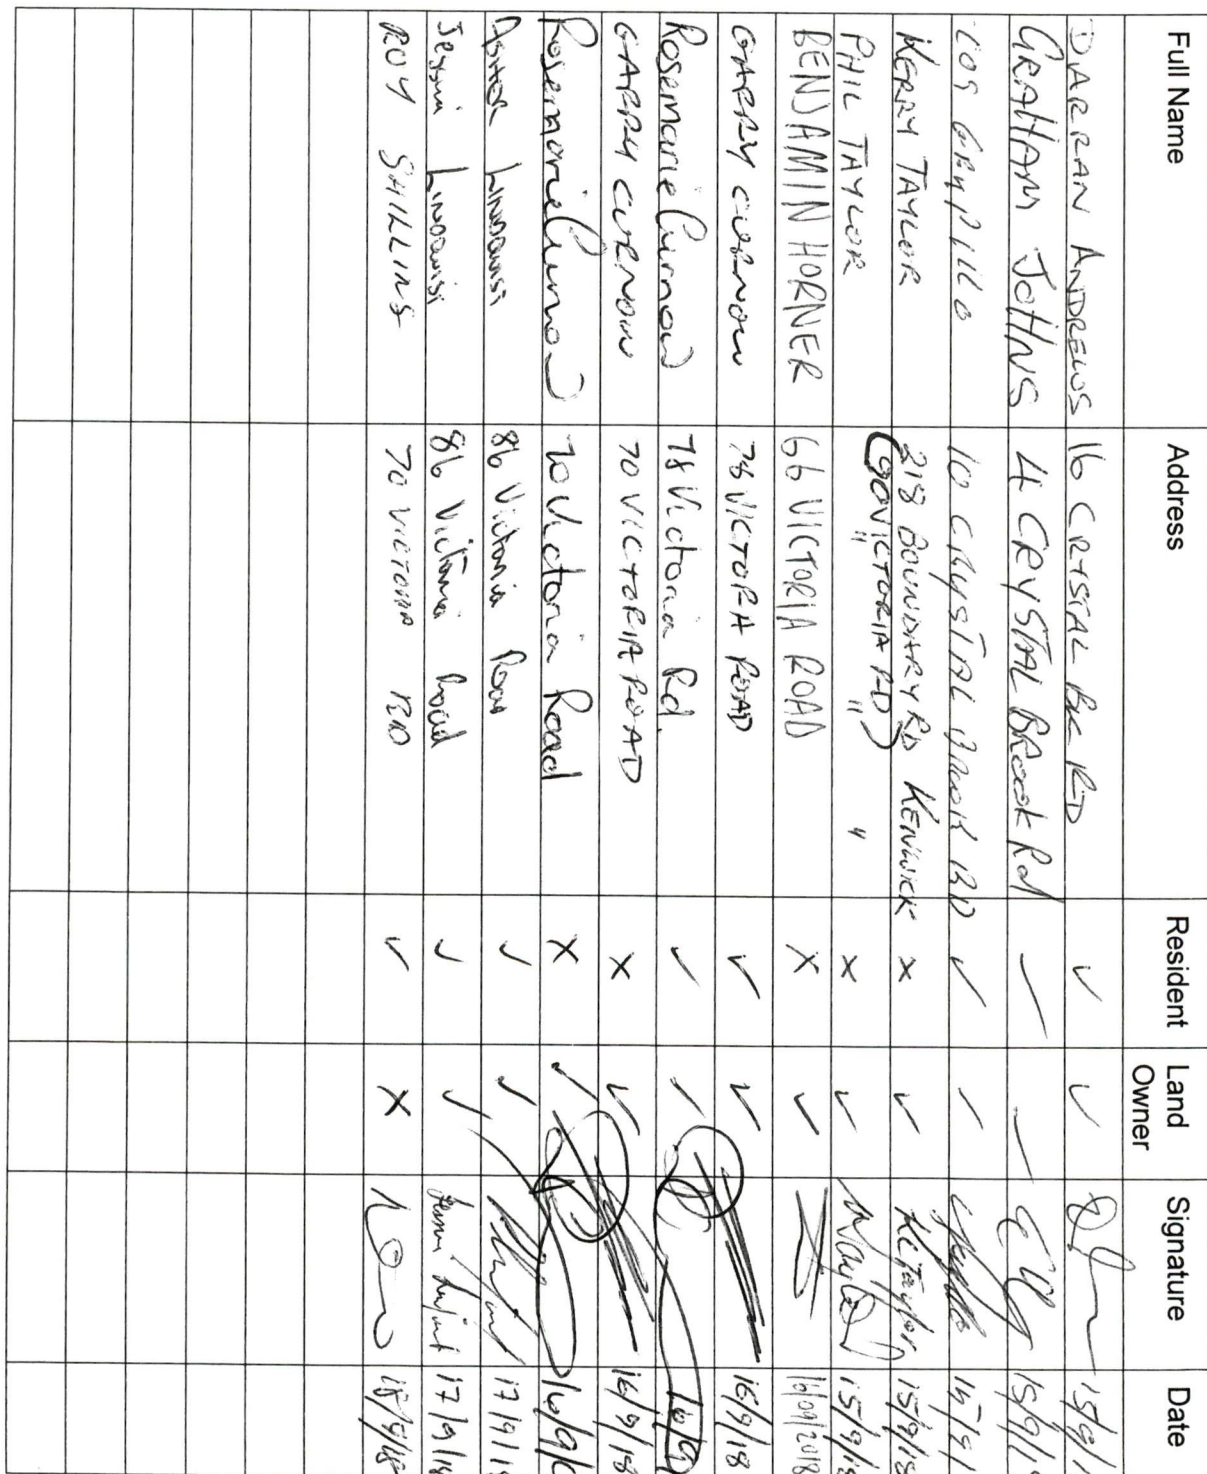 Full Name Address Resident Land Owner Signature Date
DARRAN ANDREWS 16 CRYSTAL BK RD ✓ ✓ 15/9/1
GRAHAM JOHNS 4 CRYSTAL BROOK Rd ✓ ✓ 15/9/1
10 CRYSTAL BROOK RD ✓ ✓ 15/9/1
KERRY TAYLOR 218 BOUNDARY RD KENWICK × ✓ KLTaylor 15/9/18
PHIL TAYLOR (90 VICTORIA RD) " " " × ✓ 15/9/18
BENJAMIN HORNER 66 VICTORIA ROAD × ✓ 16/09/2018
GARRY CURNOW 78 VICTORIA ROAD ✓ ✓ 16/9/18
Rosemarie Curnow 78 Victoria Rd. ✓ ✓ 16/9/
GARRY CURNOW 70 VICTORIA ROAD × ✓ 16/9/18
Rosemarie Curnow 70 Victoria Road × ✓ 16/9/
86 Victoria Road ✓ ✓ 17/9/18
86 Victoria Road ✓ ✓ 17/9/18
ROY 70 VICTORIA RD ✓ × 18/9/18